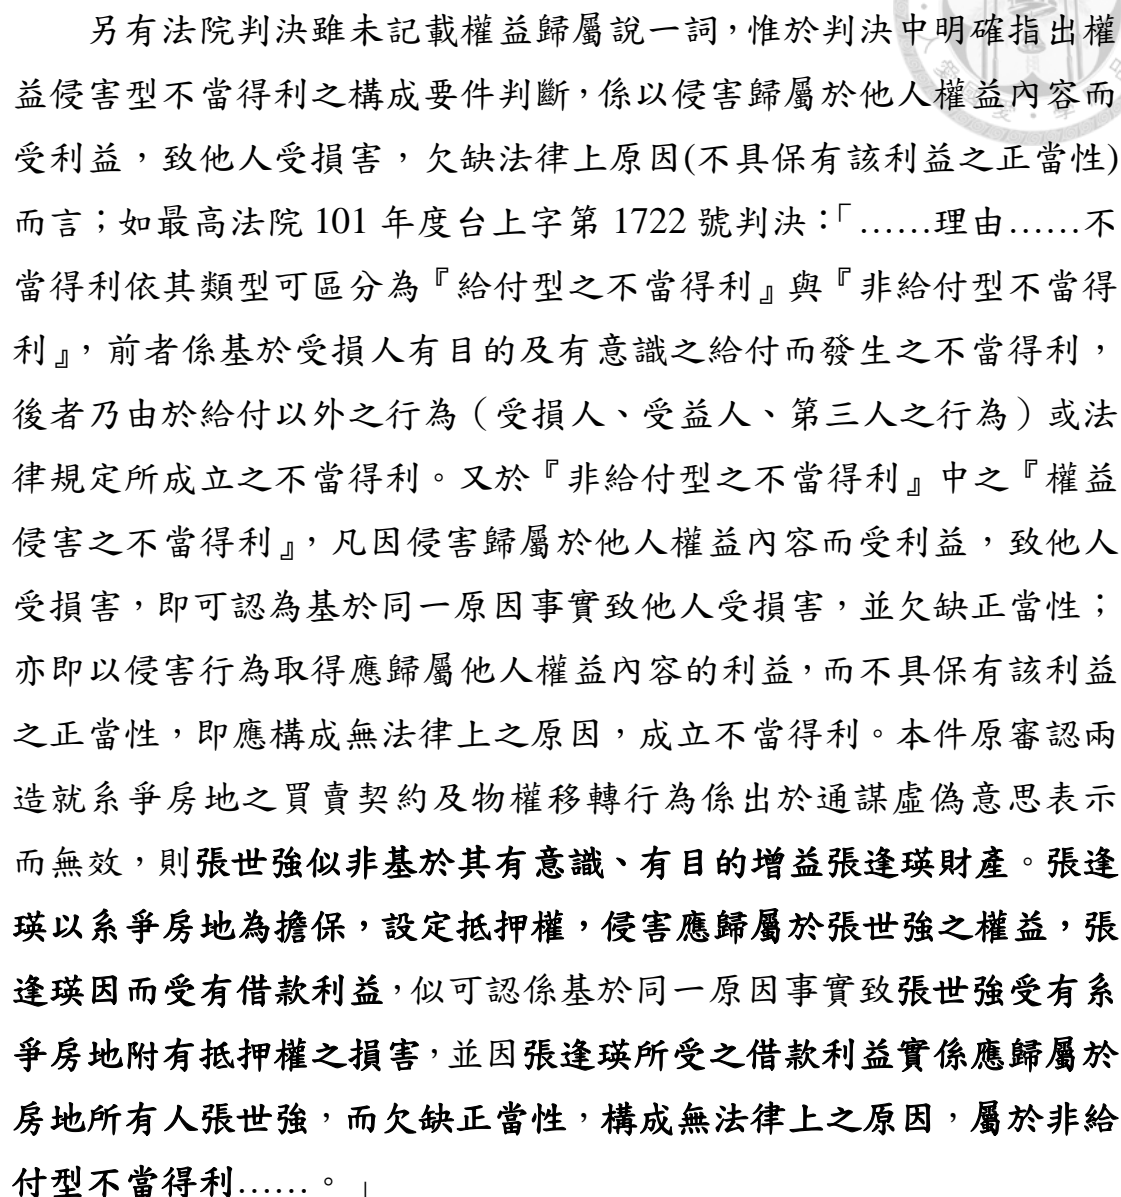 另有法院判決雖未記載權益歸屬說一詞，惟於判決中明確指出權
益侵害型不當得利之構成要件判斷，係以侵害歸屬於他人權益內容而
受利益，致他人受損害，欠缺法律上原因(不具保有該利益之正當性)
而言；如最高法院 101 年度台上字第 1722 號判決：「……理由……不
當得利依其類型可區分為『給付型之不當得利』與『非給付型不當得
利』，前者係基於受損人有目的及有意識之給付而發生之不當得利，
後者乃由於給付以外之行為（受損人、受益人、第三人之行為）或法
律規定所成立之不當得利。又於『非給付型之不當得利』中之『權益
侵害之不當得利』，凡因侵害歸屬於他人權益內容而受利益，致他人
受損害，即可認為基於同一原因事實致他人受損害，並欠缺正當性；
亦即以侵害行為取得應歸屬他人權益內容的利益，而不具保有該利益
之正當性，即應構成無法律上之原因，成立不當得利。本件原審認兩
造就系爭房地之買賣契約及物權移轉行為係出於通謀虛偽意思表示
而無效，則張世強似非基於其有意識、有目的增益張逢瑛財產。張逢
瑛以系爭房地為擔保，設定抵押權，侵害應歸屬於張世強之權益，張
逢瑛因而受有借款利益，似可認係基於同一原因事實致張世強受有系
爭房地附有抵押權之損害，並因張逢瑛所受之借款利益實係應歸屬於
房地所有人張世強，而欠缺正當性，構成無法律上之原因，屬於非給
付型不當得利……。」